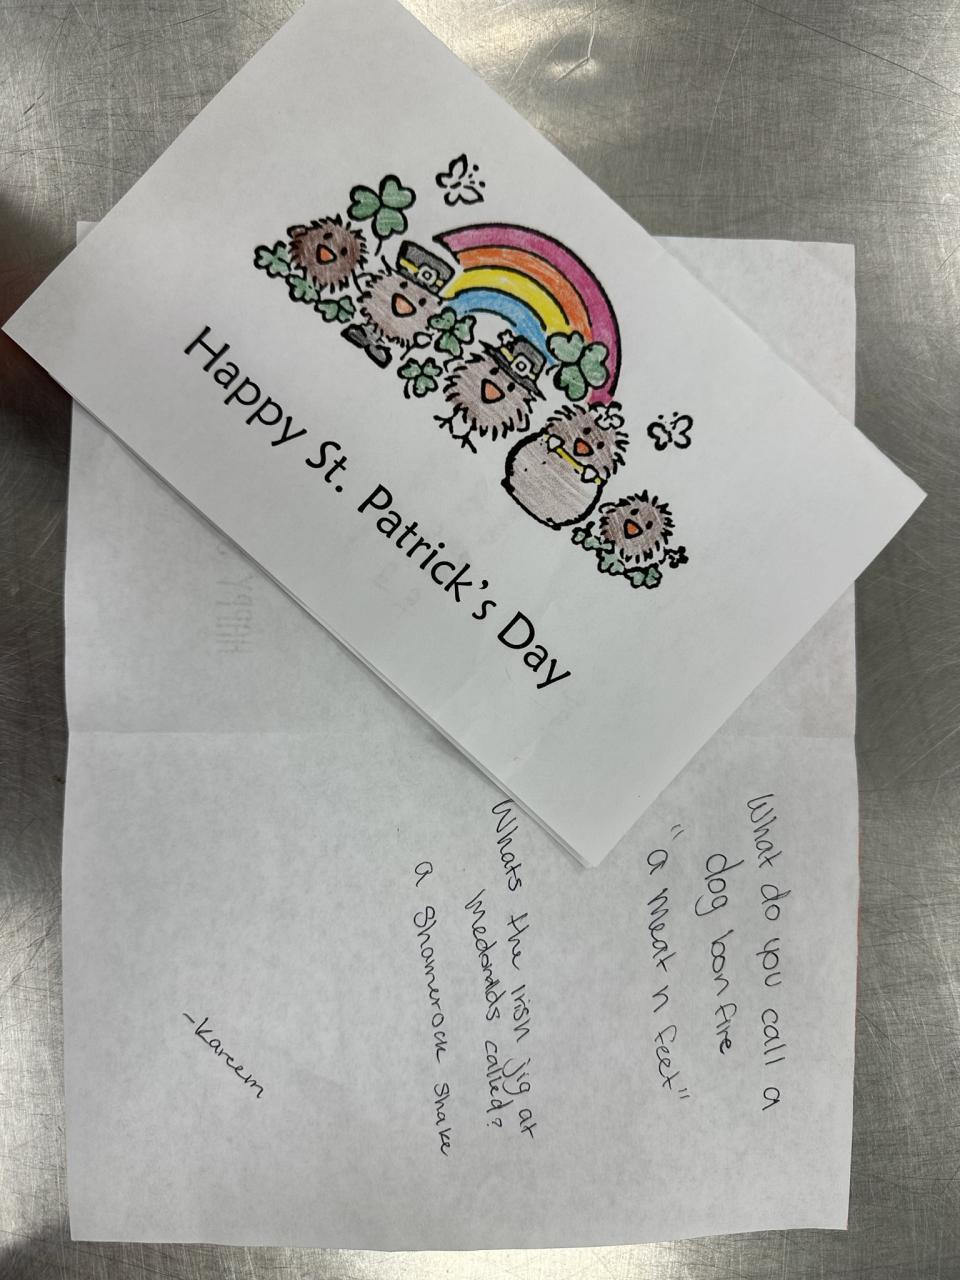 Happy St. Patrick's Day
What do you call a
dog bonfire
"a meat n feet"
Whats the irish jig at
mcdonalds called?
a shamerock shake
-Kareem